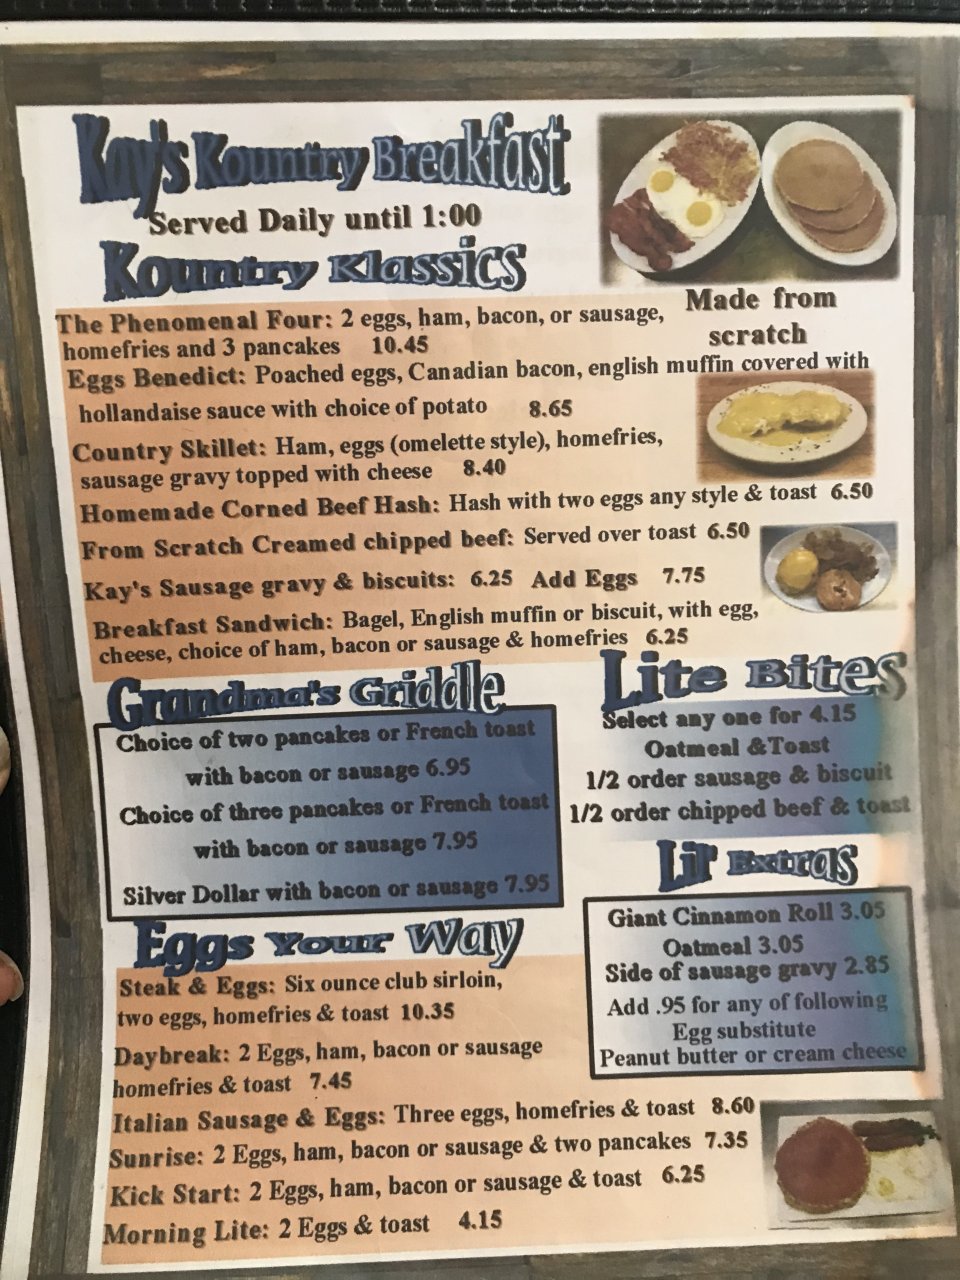 Kay's Kountry Breakfast
Served Daily until 1:00
Kountry Klassics
Made from
scratch
The Phenomenal Four: 2 eggs, ham, bacon, or sausage,
homefries and 3 pancakes 10.45
Eggs Benedict: Poached eggs, Canadian bacon, english muffin covered with
hollandaise sauce with choice of potato 8.65
Country Skillet: Ham, eggs (omelette style), homefries,
sausage gravy topped with cheese 8.40
Homemade Corned Beef Hash: Hash with two eggs any style & toast 6.50
From Scratch Creamed chipped beef: Served over toast 6.50
Kay's Sausage gravy & biscuits: 6.25 Add Eggs 7.75
Breakfast Sandwich: Bagel, English muffin or biscuit, with egg,
cheese, choice of ham, bacon or sausage & homefries 6.25
Grandma's Griddle
Choice of two pancakes or French toast
with bacon or sausage 6.95
Choice of three pancakes or French toast
with bacon or sausage 7.95
Silver Dollar with bacon or sausage 7.95
Lite Bites
Select any one for 4.15
Oatmeal &Toast
1/2 order sausage & biscuit
1/2 order chipped beef & toast
Lil' Extras
Giant Cinnamon Roll 3.05
Oatmeal 3.05
Side of sausage gravy 2.85
Add .95 for any of following
Egg substitute
Peanut butter or cream cheese
Eggs Your Way
Steak & Eggs: Six ounce club sirloin,
two eggs, homefries & toast 10.35
Daybreak: 2 Eggs, ham, bacon or sausage
homefries & toast 7.45
Italian Sausage & Eggs: Three eggs, homefries & toast 8.60
Sunrise: 2 Eggs, ham, bacon or sausage & two pancakes 7.35
Kick Start: 2 Eggs, ham, bacon or sausage & toast 6.25
Morning Lite: 2 Eggs & toast 4.15